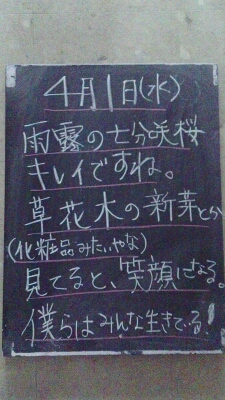 4月1日(水)
雨露の七分咲桜
キレイですね。
草花木の新芽とか
(化粧品みたいやな)
見てると、笑顔になる。
僕らはみんな生きている!